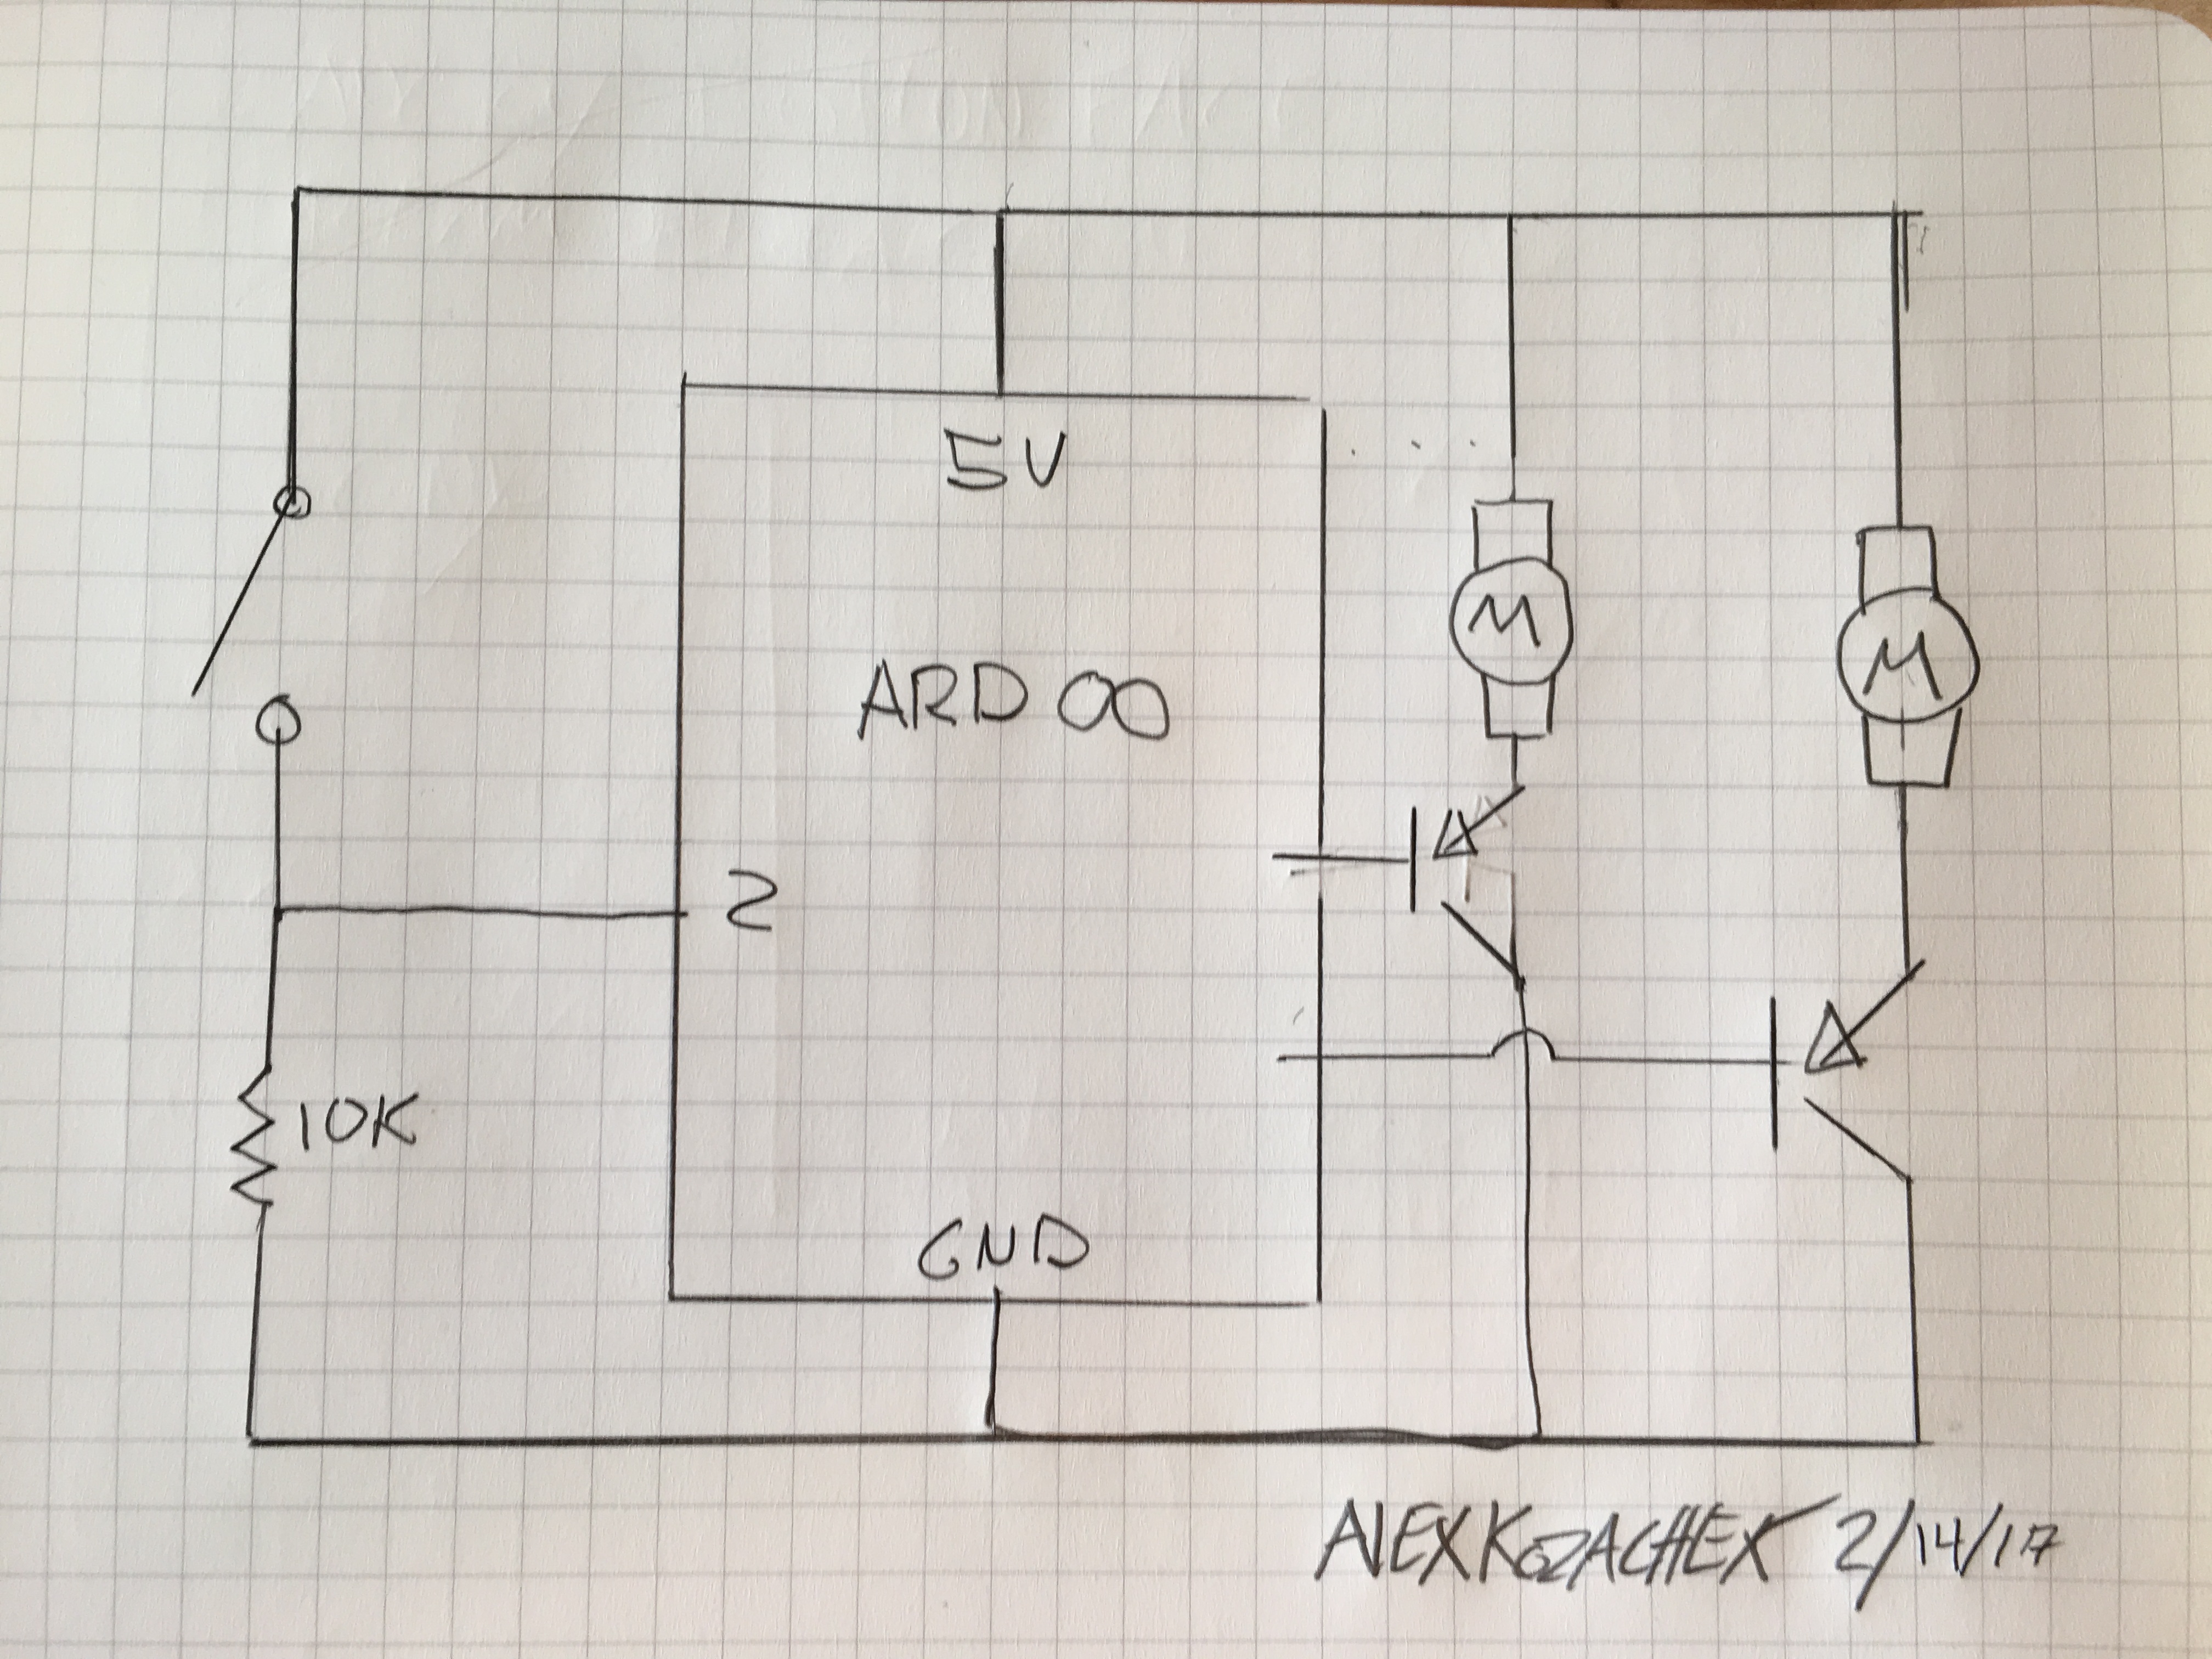 5V
ARD ∞
M
M
2
10K
GND
ALEX KOZACHEK 2/14/17